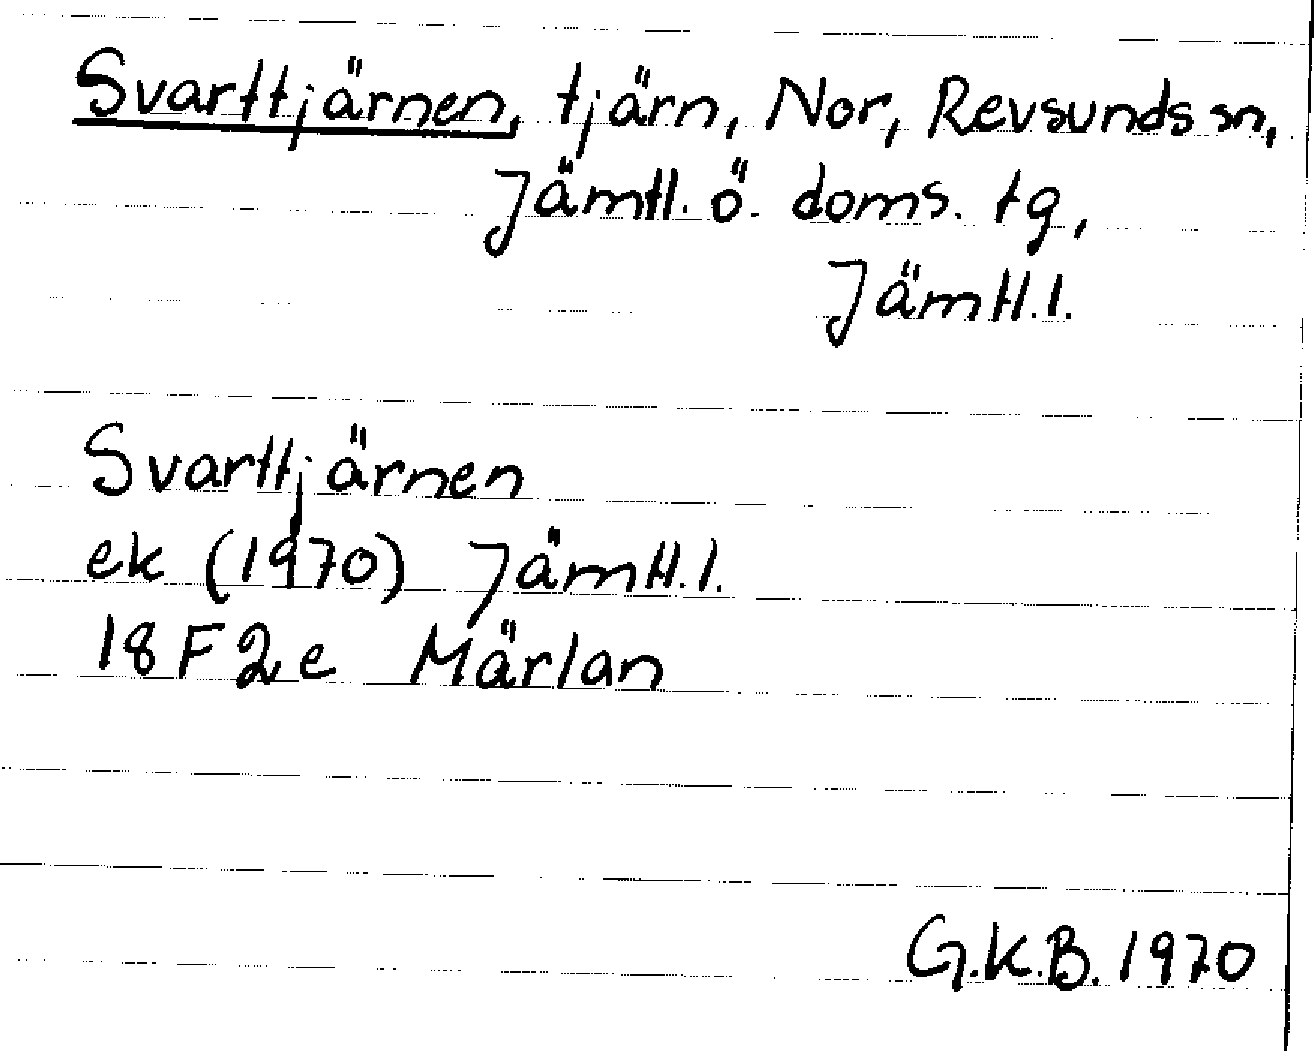 Svarttjärnen, tjärn, Nor, Revsunds sn,
Jämtl. ö. doms. tg,
Jämtl. l.
Svarttjärnen
ek (1970) Jämtl. l.
18 F 2 e Märlan
G.K.B. 1970